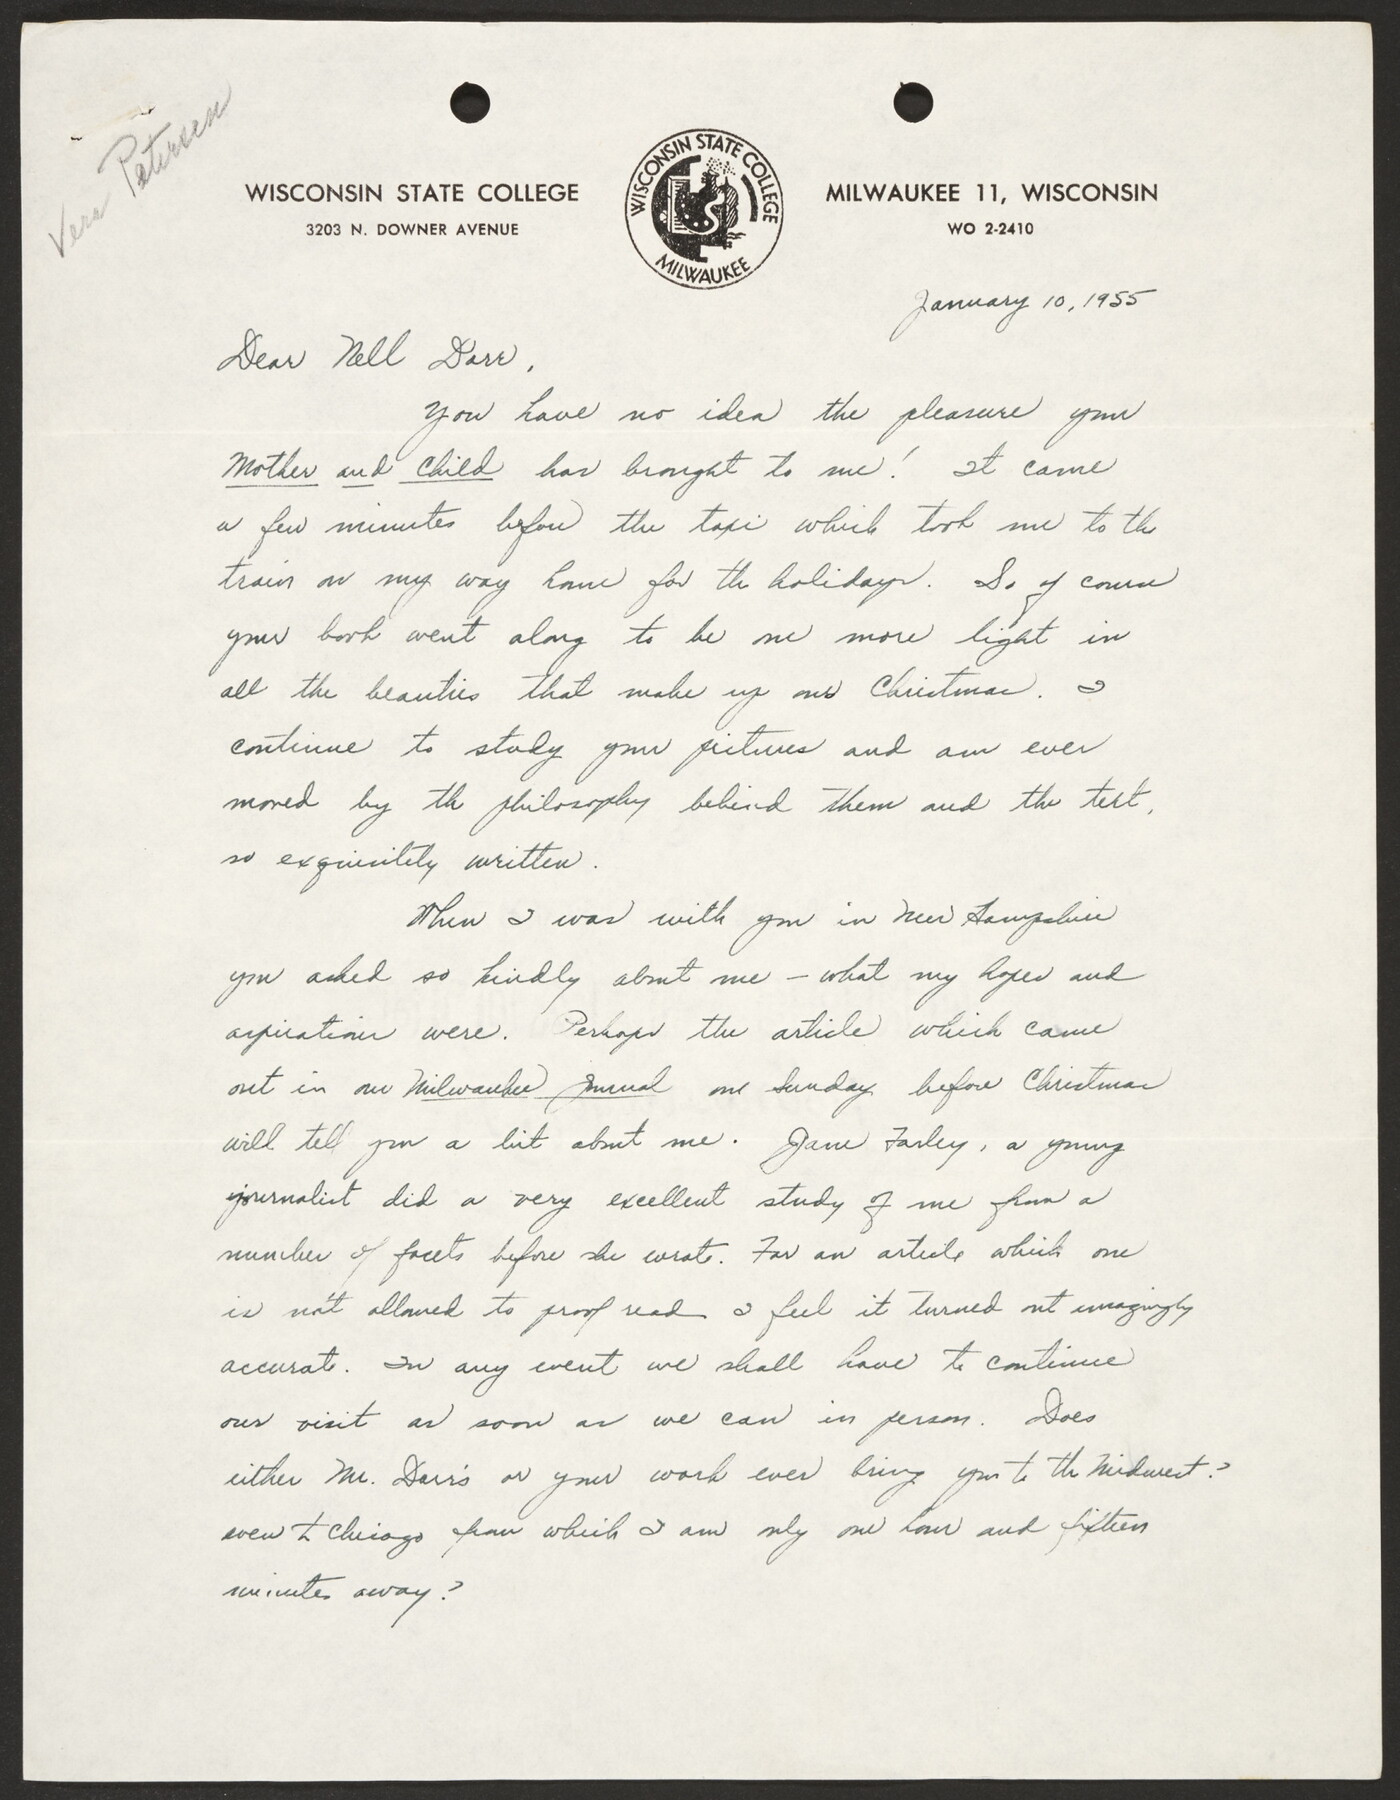 Vera Petersen
WISCONSIN STATE COLLEGE
3203 N. DOWNER AVENUE
WISCONSIN STATE COLLEGE
MILWAUKEE
MILWAUKEE 11, WISCONSIN
WO 2-2410
January 10, 1955
Dear Nell Dorr,
You have no idea the pleasure your
Mother and Child has brought to me! It came
a few minutes before the taxi which took me to the
train on my way home for the holidays. So of course
your book went along to be one more light in
all the beauties that make up our Christmas. I
continue to study your pictures and am ever
moved by the philosophy behind them and the text,
so exquisitely written.
When I was with you in New Hampshire
you asked so kindly about me – what my hopes and
aspirations were. Perhaps the article which came
out in our Milwaukee Journal one Sunday before Christmas
will tell you a bit about me. Jane Farley, a young
journalist did a very excellent study of me from a
number of facets before she wrote. For an article which one
is not allowed to proof read I feel it turned out amazingly
accurate. In any event we shall have to continue
our visit as soon as we can in person. Does
either Mr. Dorr's or your work ever bring you to the Midwest?
even to Chicago from which I am only one hour and fifteen
minutes away?